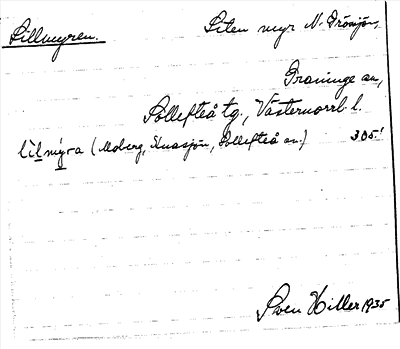 Lillmyren. Liten myr N. Drömsjön,
Graninge an,
Sollefteå tg., Västernorrl. l.
lìlmy̆ra (Moberg, Knasjön, Sollefteå an.) 305!
Sven Hiller 1935